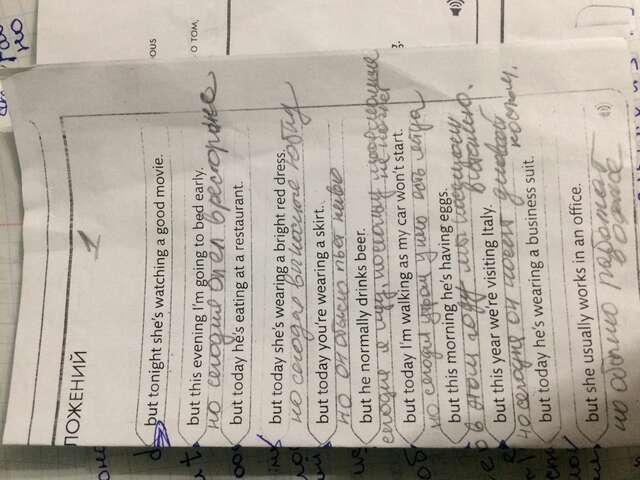 ЛОЖЕНИЙ
1
but tonight she's watching a good movie.
but this evening I'm going to bed early.
но сегодня он ел в ресторане
but today he's eating at a restaurant.
but today she's wearing a bright red dress.
но сегодня вы носите юбку
but today you're wearing a skirt.
но он обычно пьет пиво
but he normally drinks beer.
сегодня я иду, поскольку моя машина
не
but today I'm walking as my car won't start.
но сегодня утром у него есть яйца
but this morning he's having eggs.
в этом году мы посещаем
but this year we're visiting Italy.
Италию.
но сегодня он носит деловой
костюм.
but today he's wearing a business suit.
but she usually works in an office.
но обычно работает
в офисе
OUS
О ТОМ,